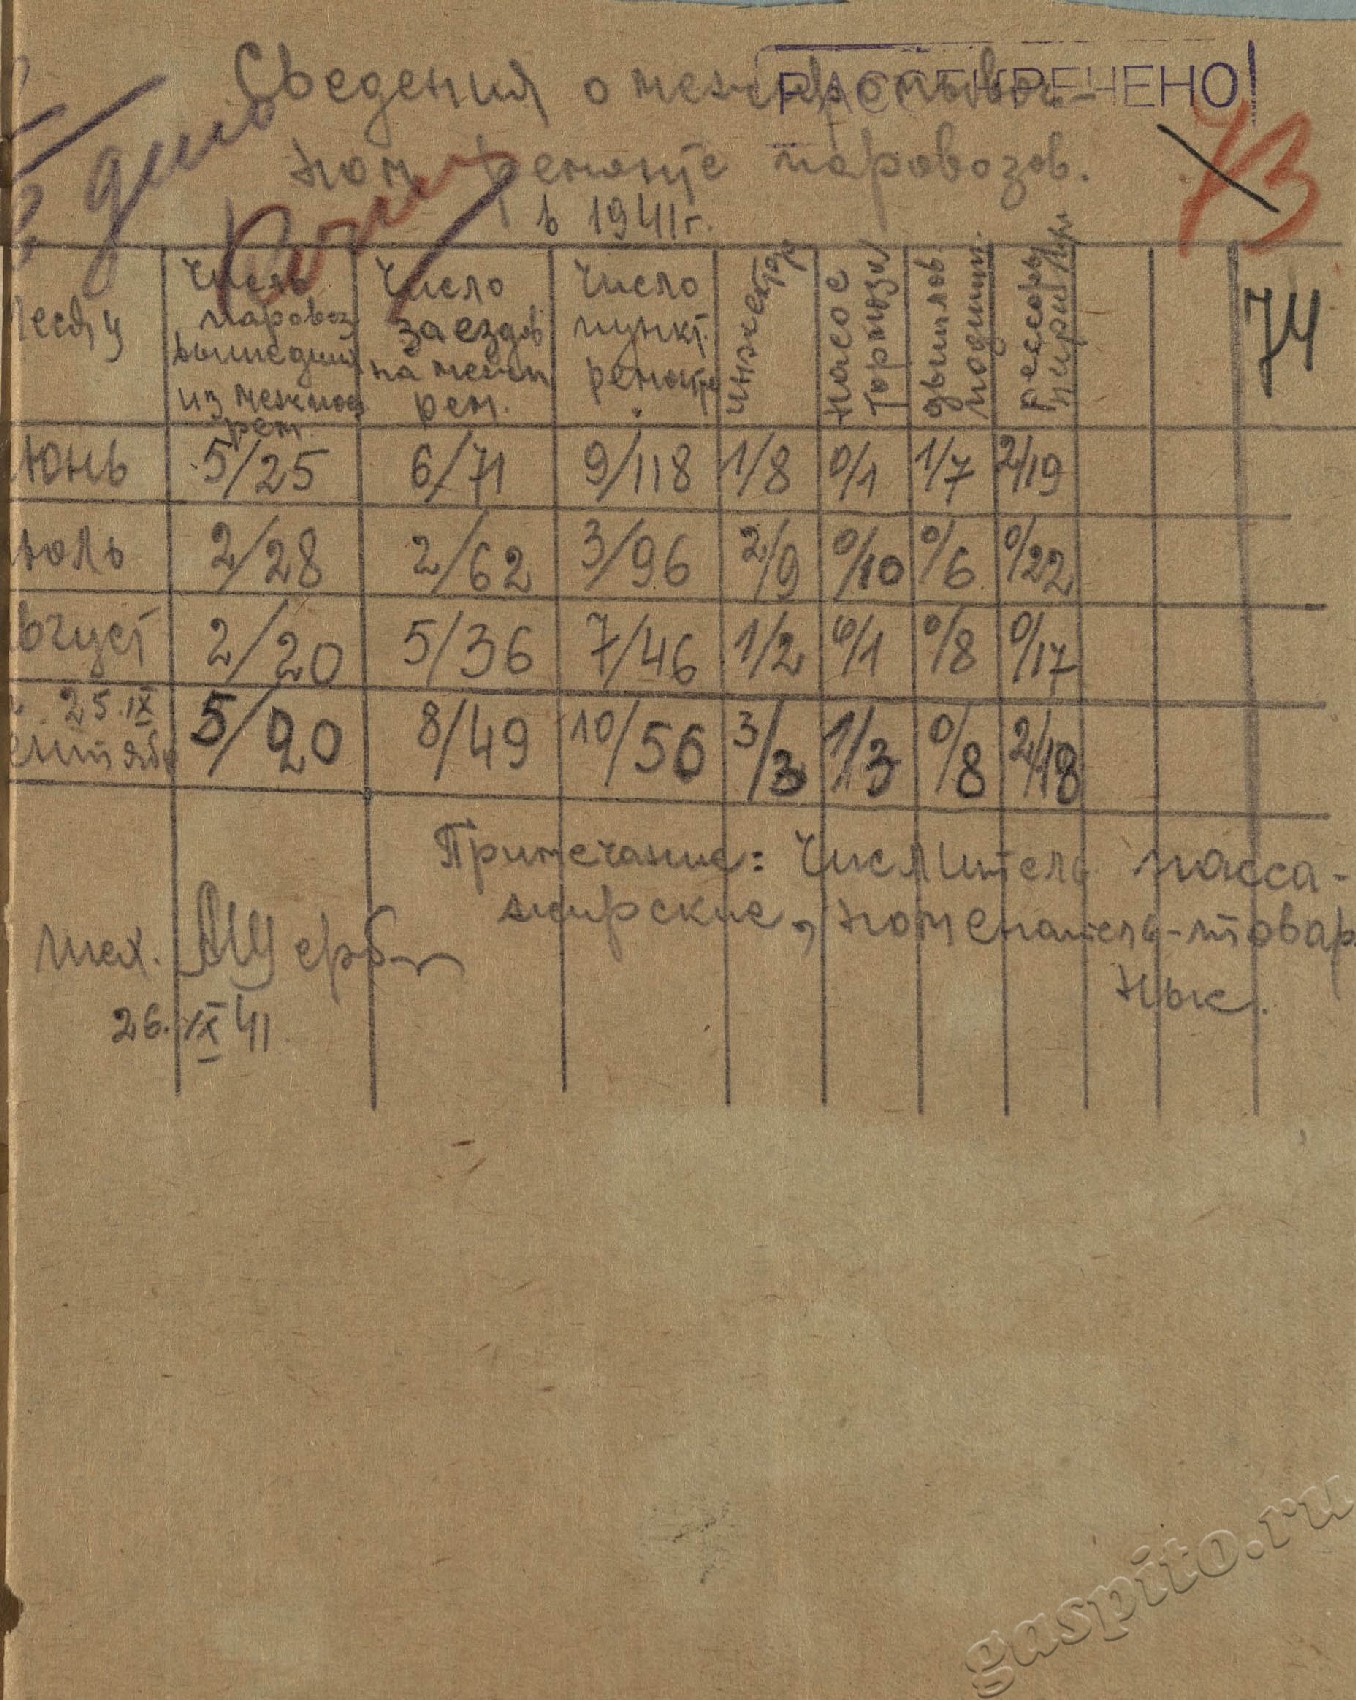 Сведения о межпромывоч-
РАССЕКРЕЧЕНО!
ном ремонте паровозов.
в 1941 г.
73
74
месяц
Число паровоз вышедших из межпром рем.
Число заездов на межп рем.
Число пункт. ремонта
инжектора
насос тормоза
дышлов. подшип.
Рессоры
июнь 5/25 6/71 9/118 1/8 0/1 1/7 2/19
июль 2/28 2/62 3/96 2/9 0/10 0/6 0/22
август 2/20 5/36 7/46 1/2 0/1 0/8 0/17
25.IX
сентябр 5/20 8/49 10/56 3/3 1/3 0/8 2/18
Примечание: Числитель пасса-
жирские, знаменатель-товар
ные.
тех.
26.IX 41
gaspito.ru